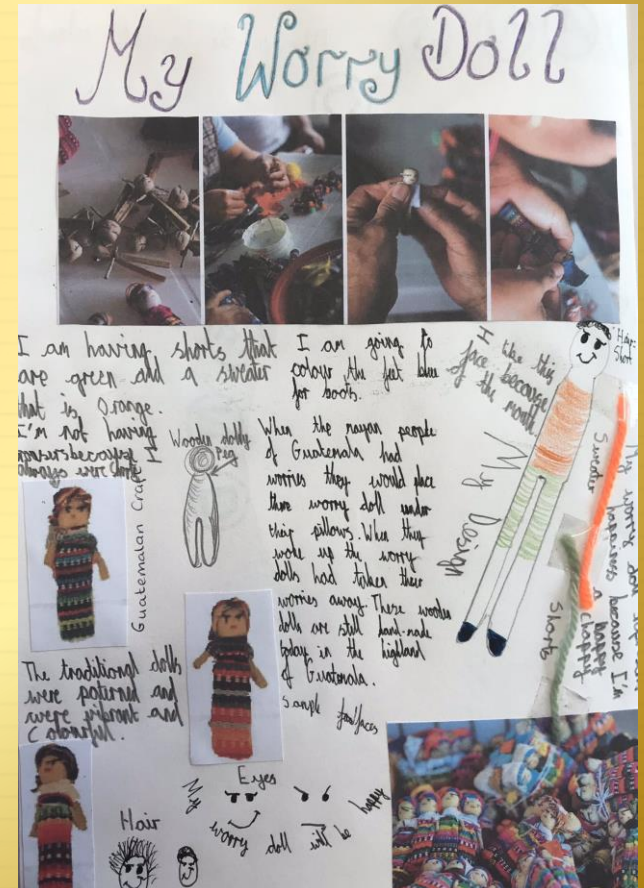 My Worry Doll
I am having shorts that
are green and a sweater
that is Orange.
I'm not having
because I
always
I am going to
colour the feet blue
for boots.
I like this
face because
of the mouth
Hair:
Short
Wooden dolly
Peg
Guatemalan Craft
When the mayan people
of Guatemala had
worries they would place
there worry doll under
thir pillows. When they
woke up the worry
dolls had taken their
worries away. These wooden
dolls are still hand-made
today in the highland
of Guatemala.
My Design
Sweater
Shorts
My worry doll
happiness because I'm
a happy
chappy
The traditional dolls
were paterned and
were vibrant and
Colourful.
Sample faces
Eyes
My worry doll will be happy
Hair